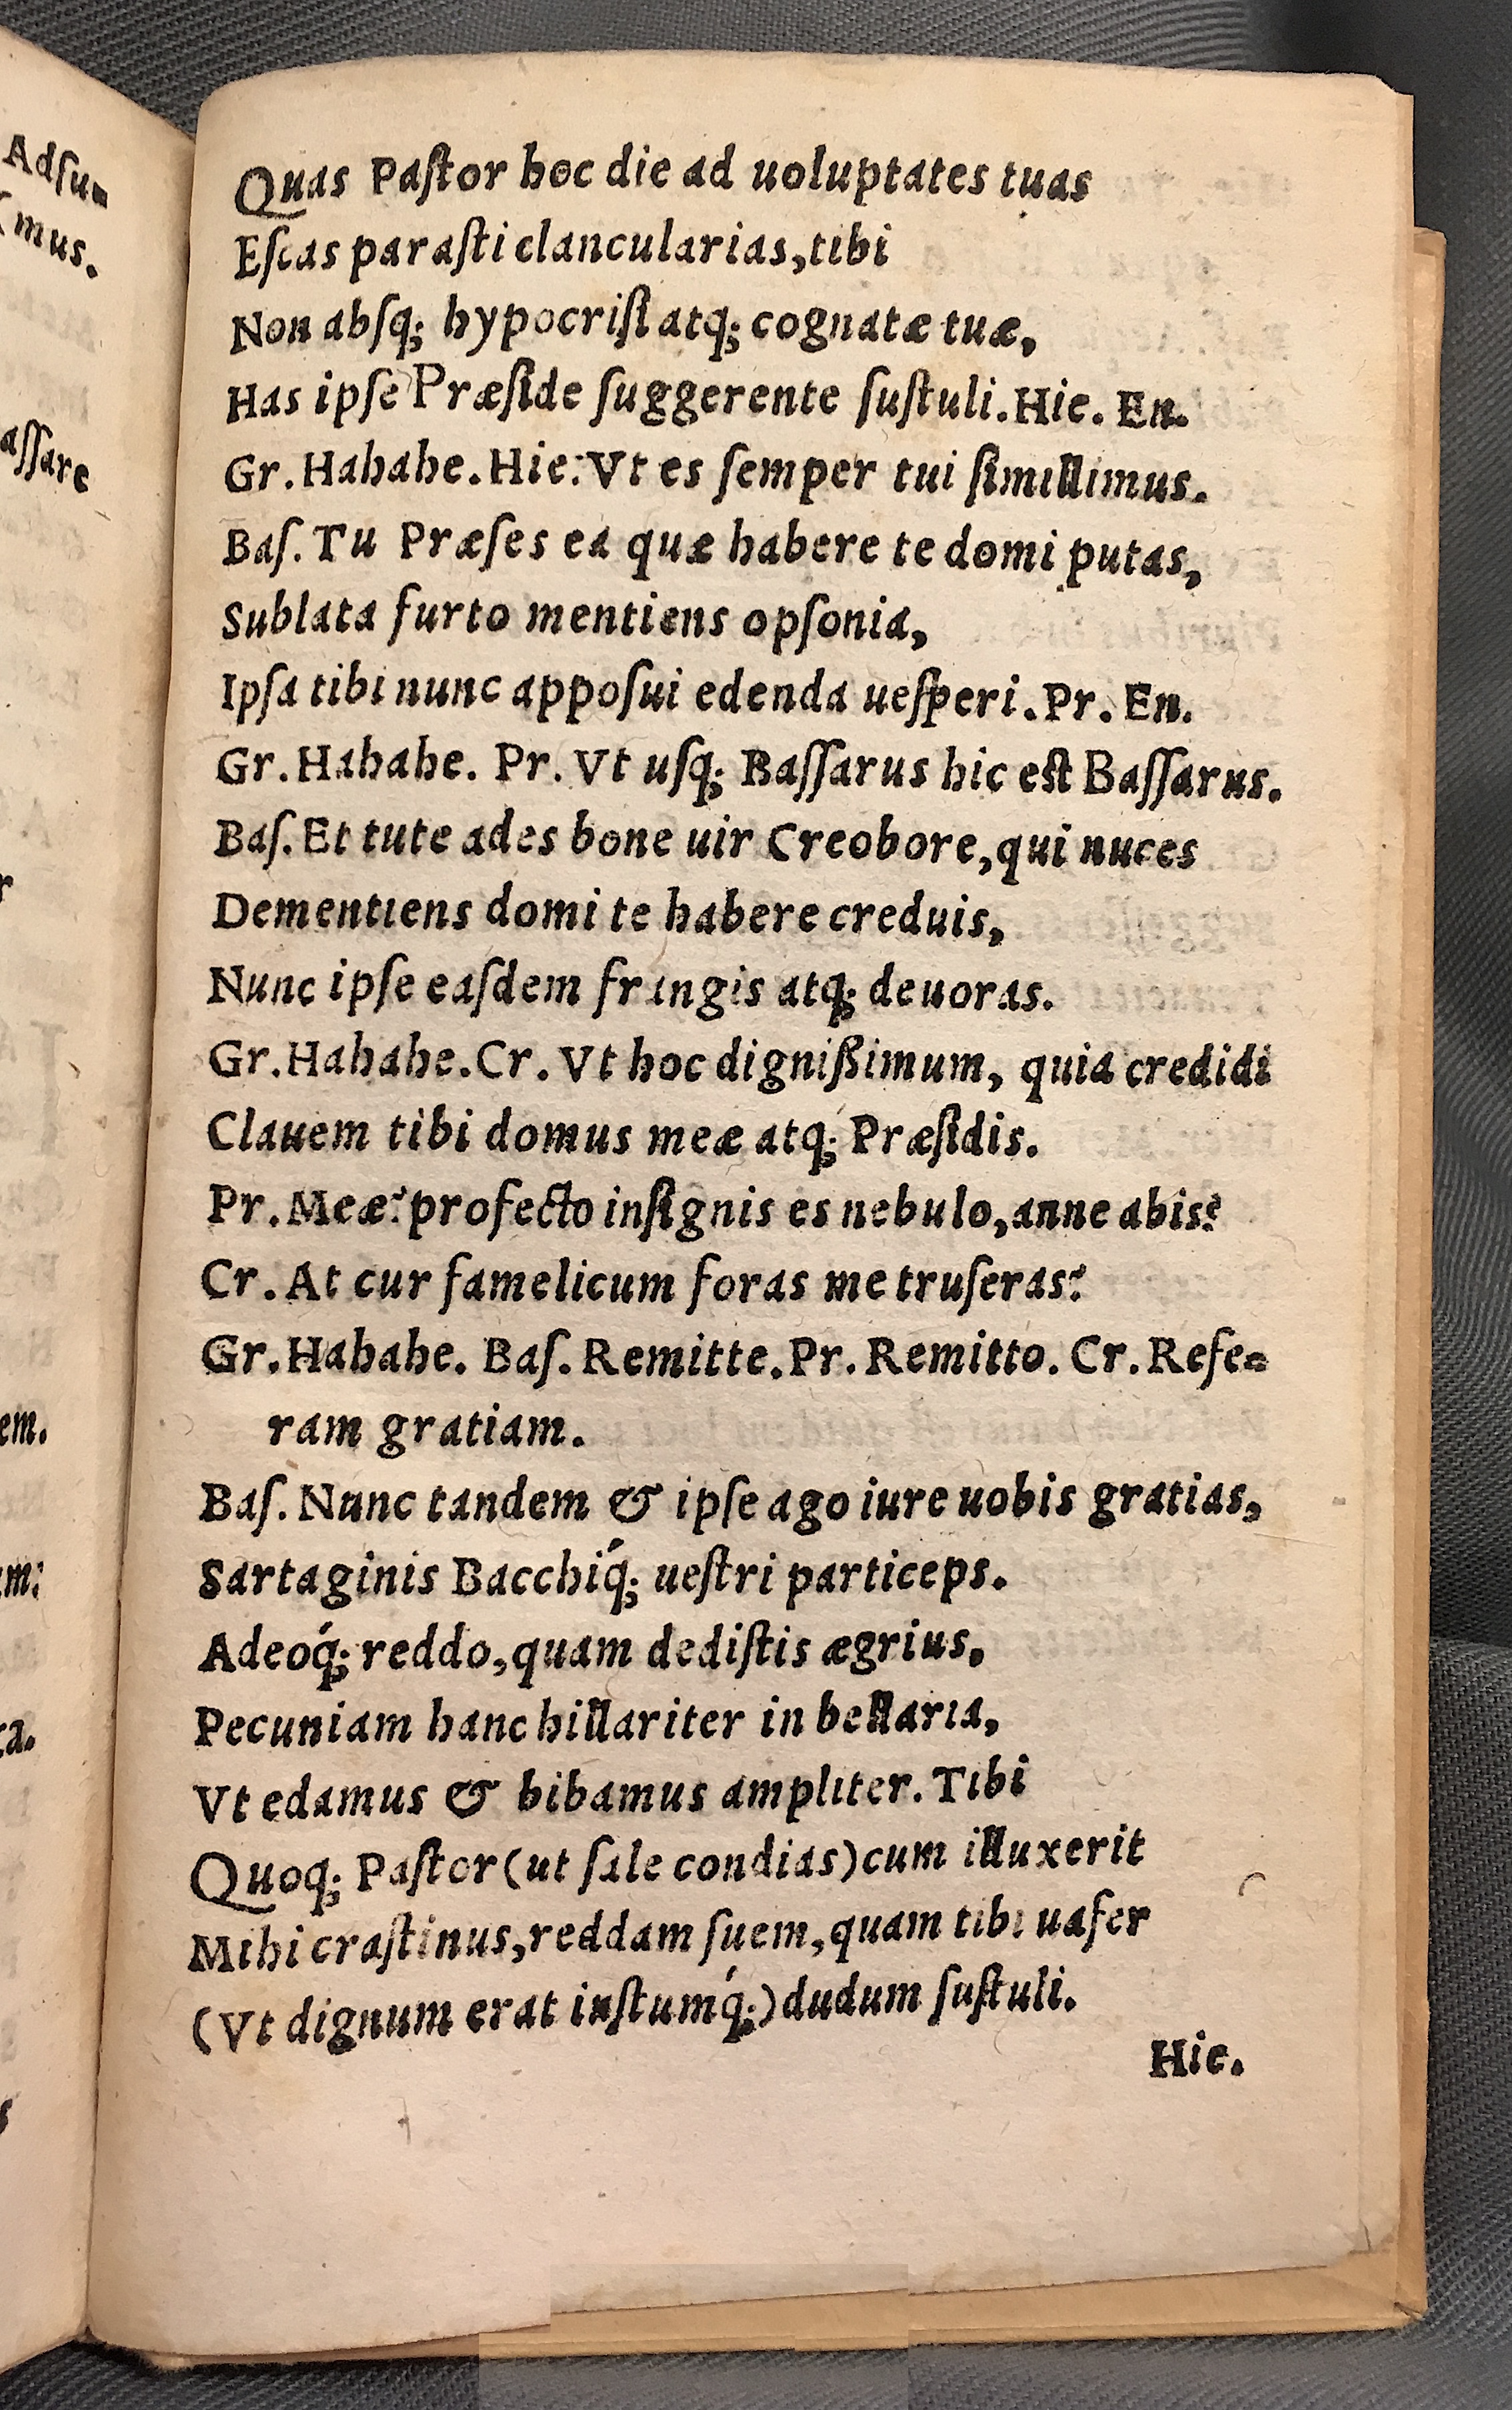 Adſu-
(mus.
aſſare
r
em.
m:
ra.
s
Quas Paſtor hoc die ad uoluptates tuas
Eſcas paraſti clancularias, tibi
Non abſq; hypocriſi atq; cognatæ tuæ,
Has ipſe Præſide ſuggerente ſuſtuli. Hie. En.
Gr. Hahahe. Hie: Vt es ſemper tui ſimillimus.
Baſ. Tu Præſes ea quæ habere te domi putas,
Sublata furto mentiens opſonia,
Ipſa tibi nunc appoſui edenda ueſperi. Pr. En.
Gr. Hahahe. Pr. Vt uſq; Baſſarus hic eſt Baſſarus.
Baſ. Et tute ades bone uir Creobore, qui nuces
Dementiens domi te habere creduis,
Nunc ipſe eaſdem frangis atq; deuoras.
Gr. Hahahe. Cr. Vt hoc digniſſimum, quia credidi
Clauem tibi domus meæ atq; Præſidis.
Pr. Meæ? profecto inſignis es nebulo, anne abis?
Cr. At cur famelicum foras me truſeras?
Gr. Hahahe. Baſ. Remitte. Pr. Remitto. Cr. Refe-
ram gratiam.
Baſ. Nunc tandem & ipſe ago iure uobis gratias,
Sartaginis Bacchiq́; ueſtri particeps.
Adeoq́; reddo, quam dediſtis ægrius,
Pecuniam hanc hillariter in bellaria,
Vt edamus & bibamus ampliter. Tibi
Quoq; Paſtor (ut ſale condias) cum illuxerit
Mihi craſtinus, reddam ſuem, quam tibi uafer
(Vt dignum erat iuſtumq́;) dudum ſuſtuli.
Hie.